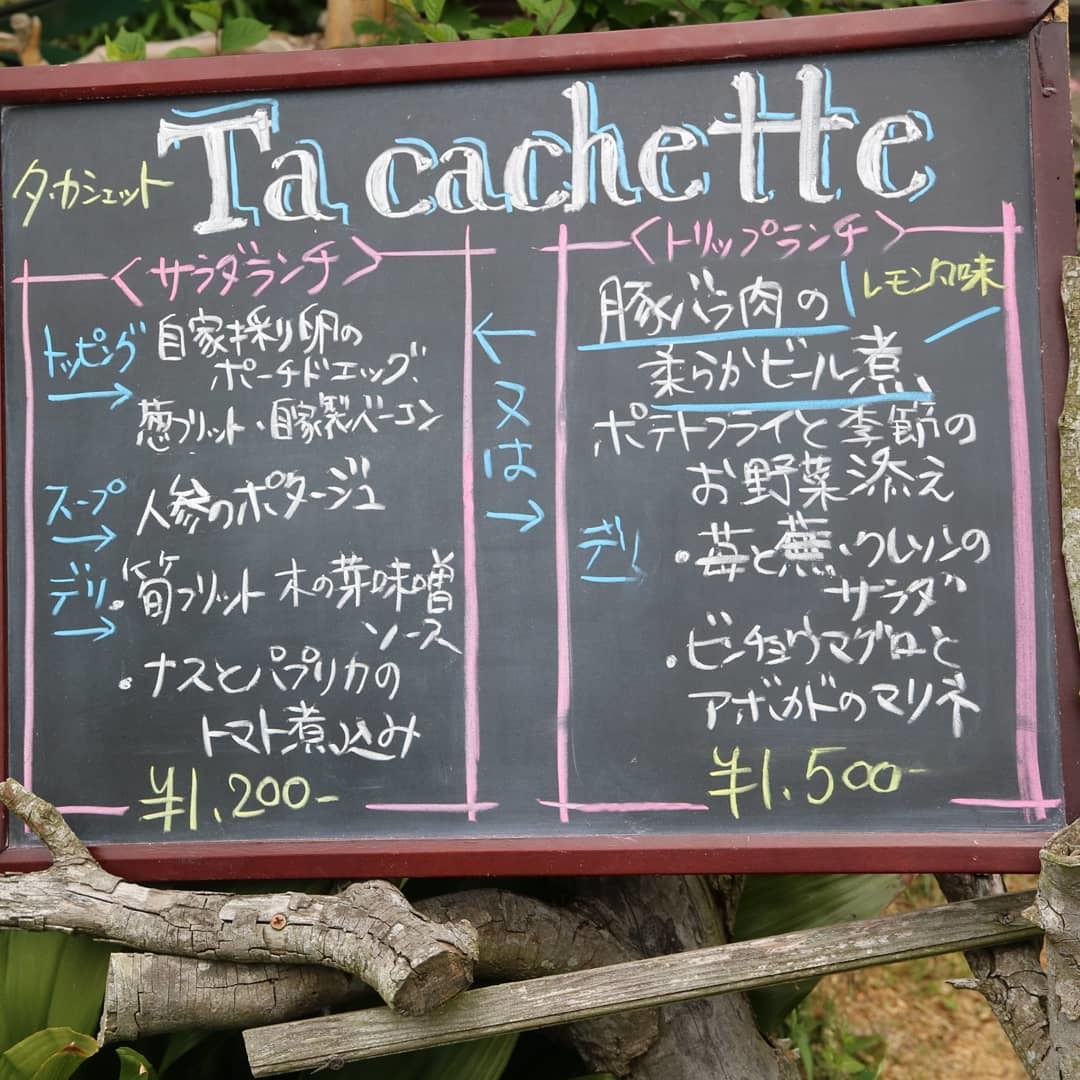 Ta cachette
タ・カシェット
〈サラダランチ〉
トッピング
自家採り卵の
ポーチドエッグ、
葱フリット・自家製ベーコン
スープ
人参のポタージュ
デリ
・筍フリット 木の芽味噌
ソース
・ナスとパプリカの
トマト煮込み
¥1,200-
又は
〈トリップランチ〉
豚バラ肉の
レモン風味
柔らかビール煮
ポテトフライと季節の
お野菜添え
デリ
・苺と蕪、クレソンの
サラダ
・ビンチョウマグロと
アボカドのマリネ
¥1,500-